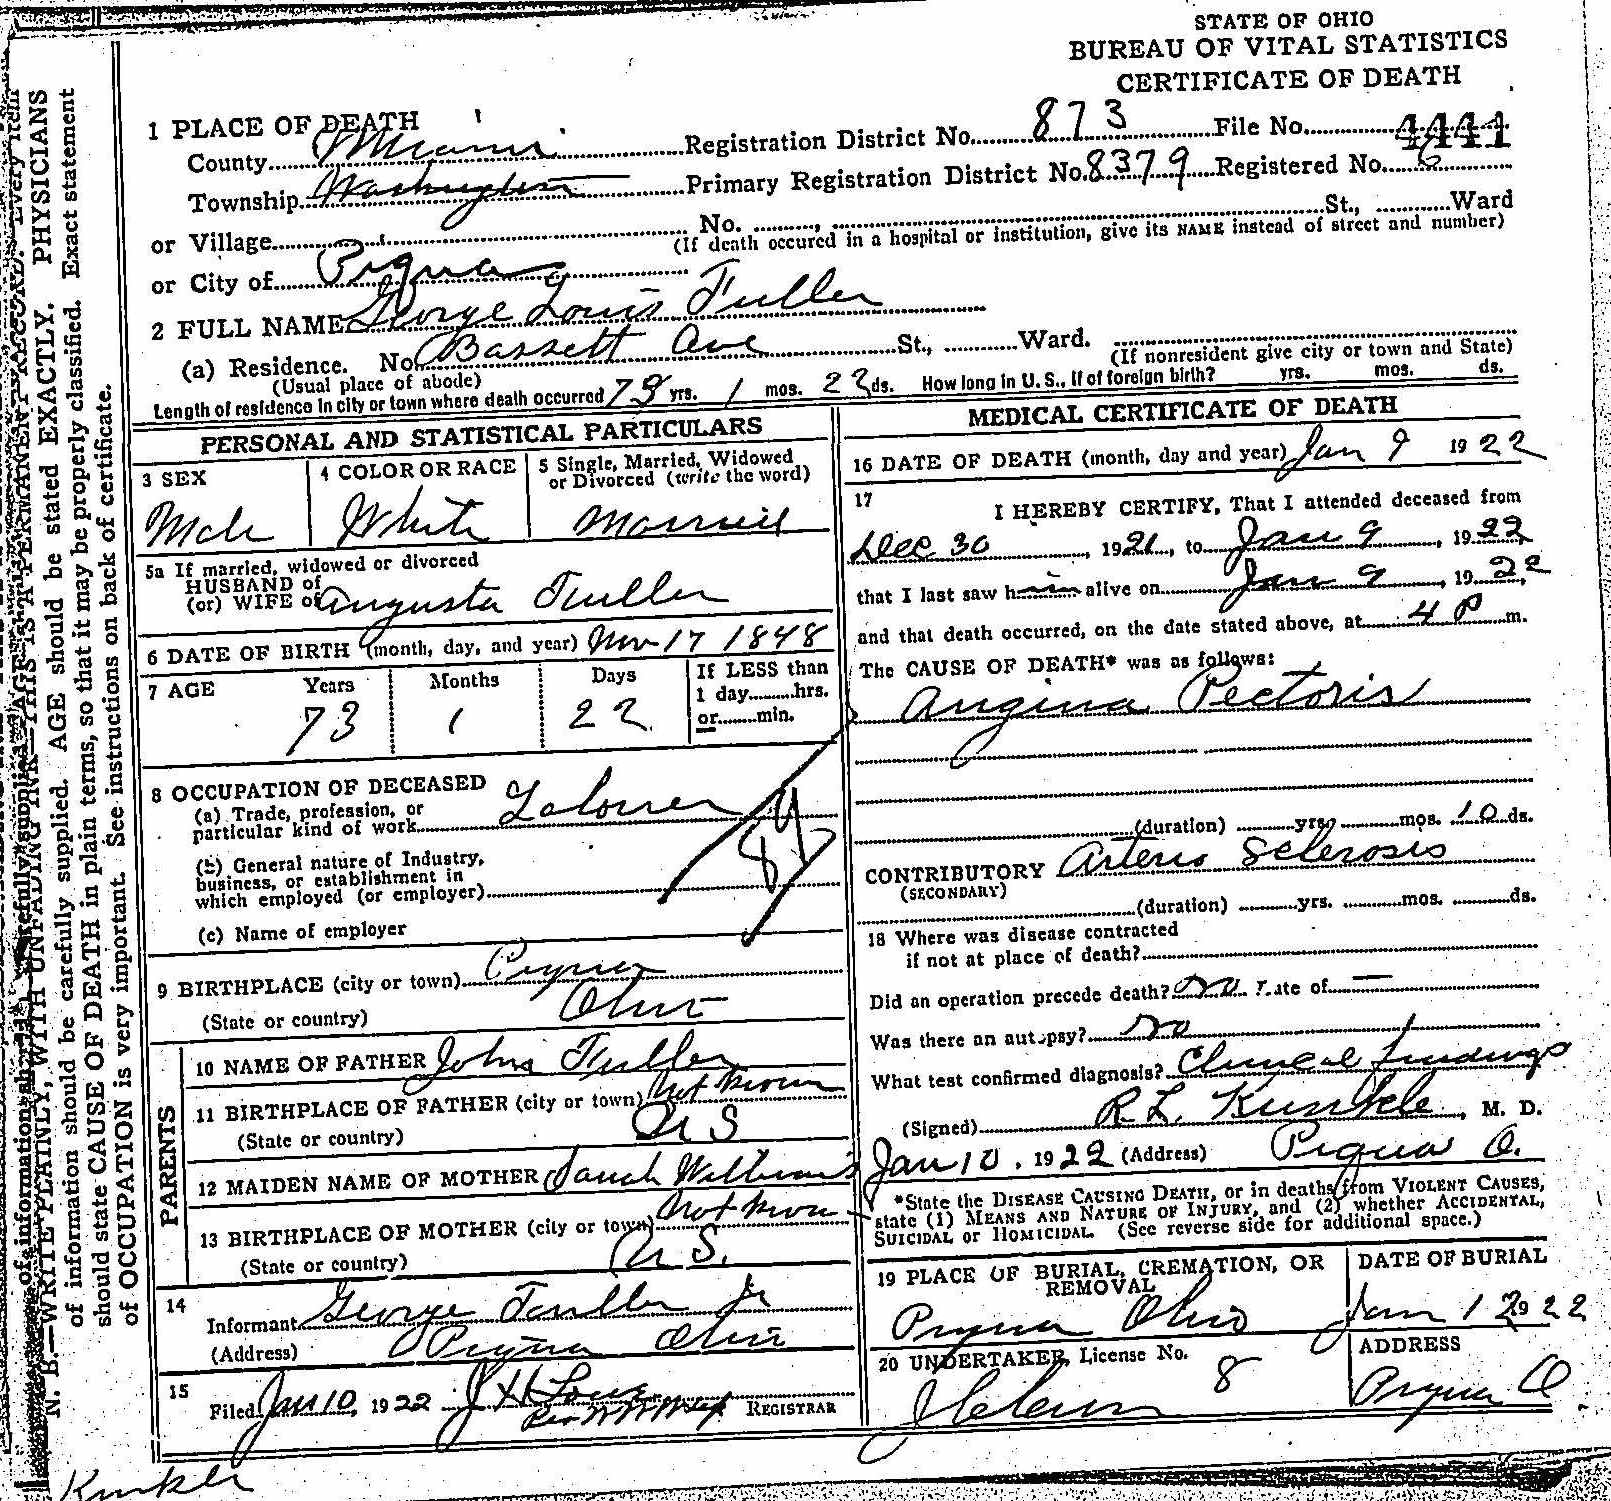 STATE OF OHIO
BUREAU OF VITAL STATISTICS
CERTIFICATE OF DEATH
1 PLACE OF DEATH
County Miami Registration District No. 873 File No. 4441
Township Washington Primary Registration District No. 8379 Registered No.
or Village No. St., Ward
(If death occured in a hospital or institution, give its NAME instead of street and number)
or City of Piqua
2 FULL NAME George Louis Fuller
(a) Residence. No. Bassett Ave St., Ward.
(Usual place of abode) (If nonresident give city or town and State)
Length of residence in city or town where death occurred 73 yrs. 1 mos. 22 ds. How long in U. S., if of foreign birth? yrs. mos. ds.
PERSONAL AND STATISTICAL PARTICULARS
3 SEX
Male
4 COLOR OR RACE
White
5 Single, Married, Widowed
or Divorced (write the word)
Married
5a If married, widowed or divorced
HUSBAND of
(or) WIFE of Augusta Fuller
6 DATE OF BIRTH (month, day, and year) Nov 17 1848
7 AGE Years Months Days
73 1 22
If LESS than
1 day hrs.
or min.
8 OCCUPATION OF DECEASED
(a) Trade, profession, or
particular kind of work Laborer
(b) General nature of Industry,
business, or establishment in
which employed (or employer)
(c) Name of employer
9 BIRTHPLACE (city or town) Piqua
(State or country) Ohio
PARENTS
10 NAME OF FATHER John Fuller
11 BIRTHPLACE OF FATHER (city or town) Not known
(State or country) U S
12 MAIDEN NAME OF MOTHER Williams
13 BIRTHPLACE OF MOTHER (city or town) Not known
(State or country) U S.
14
Informant George Fuller Jr
(Address) Piqua Ohio
15
Filed Jan 10, 1922 REGISTRAR
MEDICAL CERTIFICATE OF DEATH
16 DATE OF DEATH (month, day and year) Jan 9 1922
17
I HEREBY CERTIFY, That I attended deceased from
Dec 30, 1921, to Jan 9, 1922
that I last saw him alive on Jan 9, 1922,
and that death occurred, on the date stated above, at 4 P m.
The CAUSE OF DEATH* was as follows:
Angina Pectoris
(duration) yrs. mos. 10 ds.
CONTRIBUTORY Arterio Sclerosis
(SECONDARY)
(duration) yrs. mos. ds.
18 Where was disease contracted
if not at place of death?
Did an operation precede death? No Date of —
Was there an autopsy? No
What test confirmed diagnosis? Clinical findings
(Signed) R L. Kunkle, M. D.
Jan 10, 1922 (Address) Piqua O.
*State the DISEASE CAUSING DEATH, or in deaths from VIOLENT CAUSES,
state (1) MEANS AND NATURE OF INJURY, and (2) whether ACCIDENTAL,
SUICIDAL or HOMICIDAL. (See reverse side for additional space.)
19 PLACE OF BURIAL, CREMATION, OR
REMOVAL
Piqua Ohio
DATE OF BURIAL
Jan 12 1922
20 UNDERTAKER, License No. 8
ADDRESS
Piqua O
N. B.—WRITE PLAINLY, WITH UNFADING INK—THIS IS A PERMANENT RECORD. Every item
of information should be carefully supplied. AGE should be stated EXACTLY. PHYSICIANS
should state CAUSE OF DEATH in plain terms, so that it may be properly classified. Exact statement
of OCCUPATION is very important. See instructions on back of certificate.
Kunkle